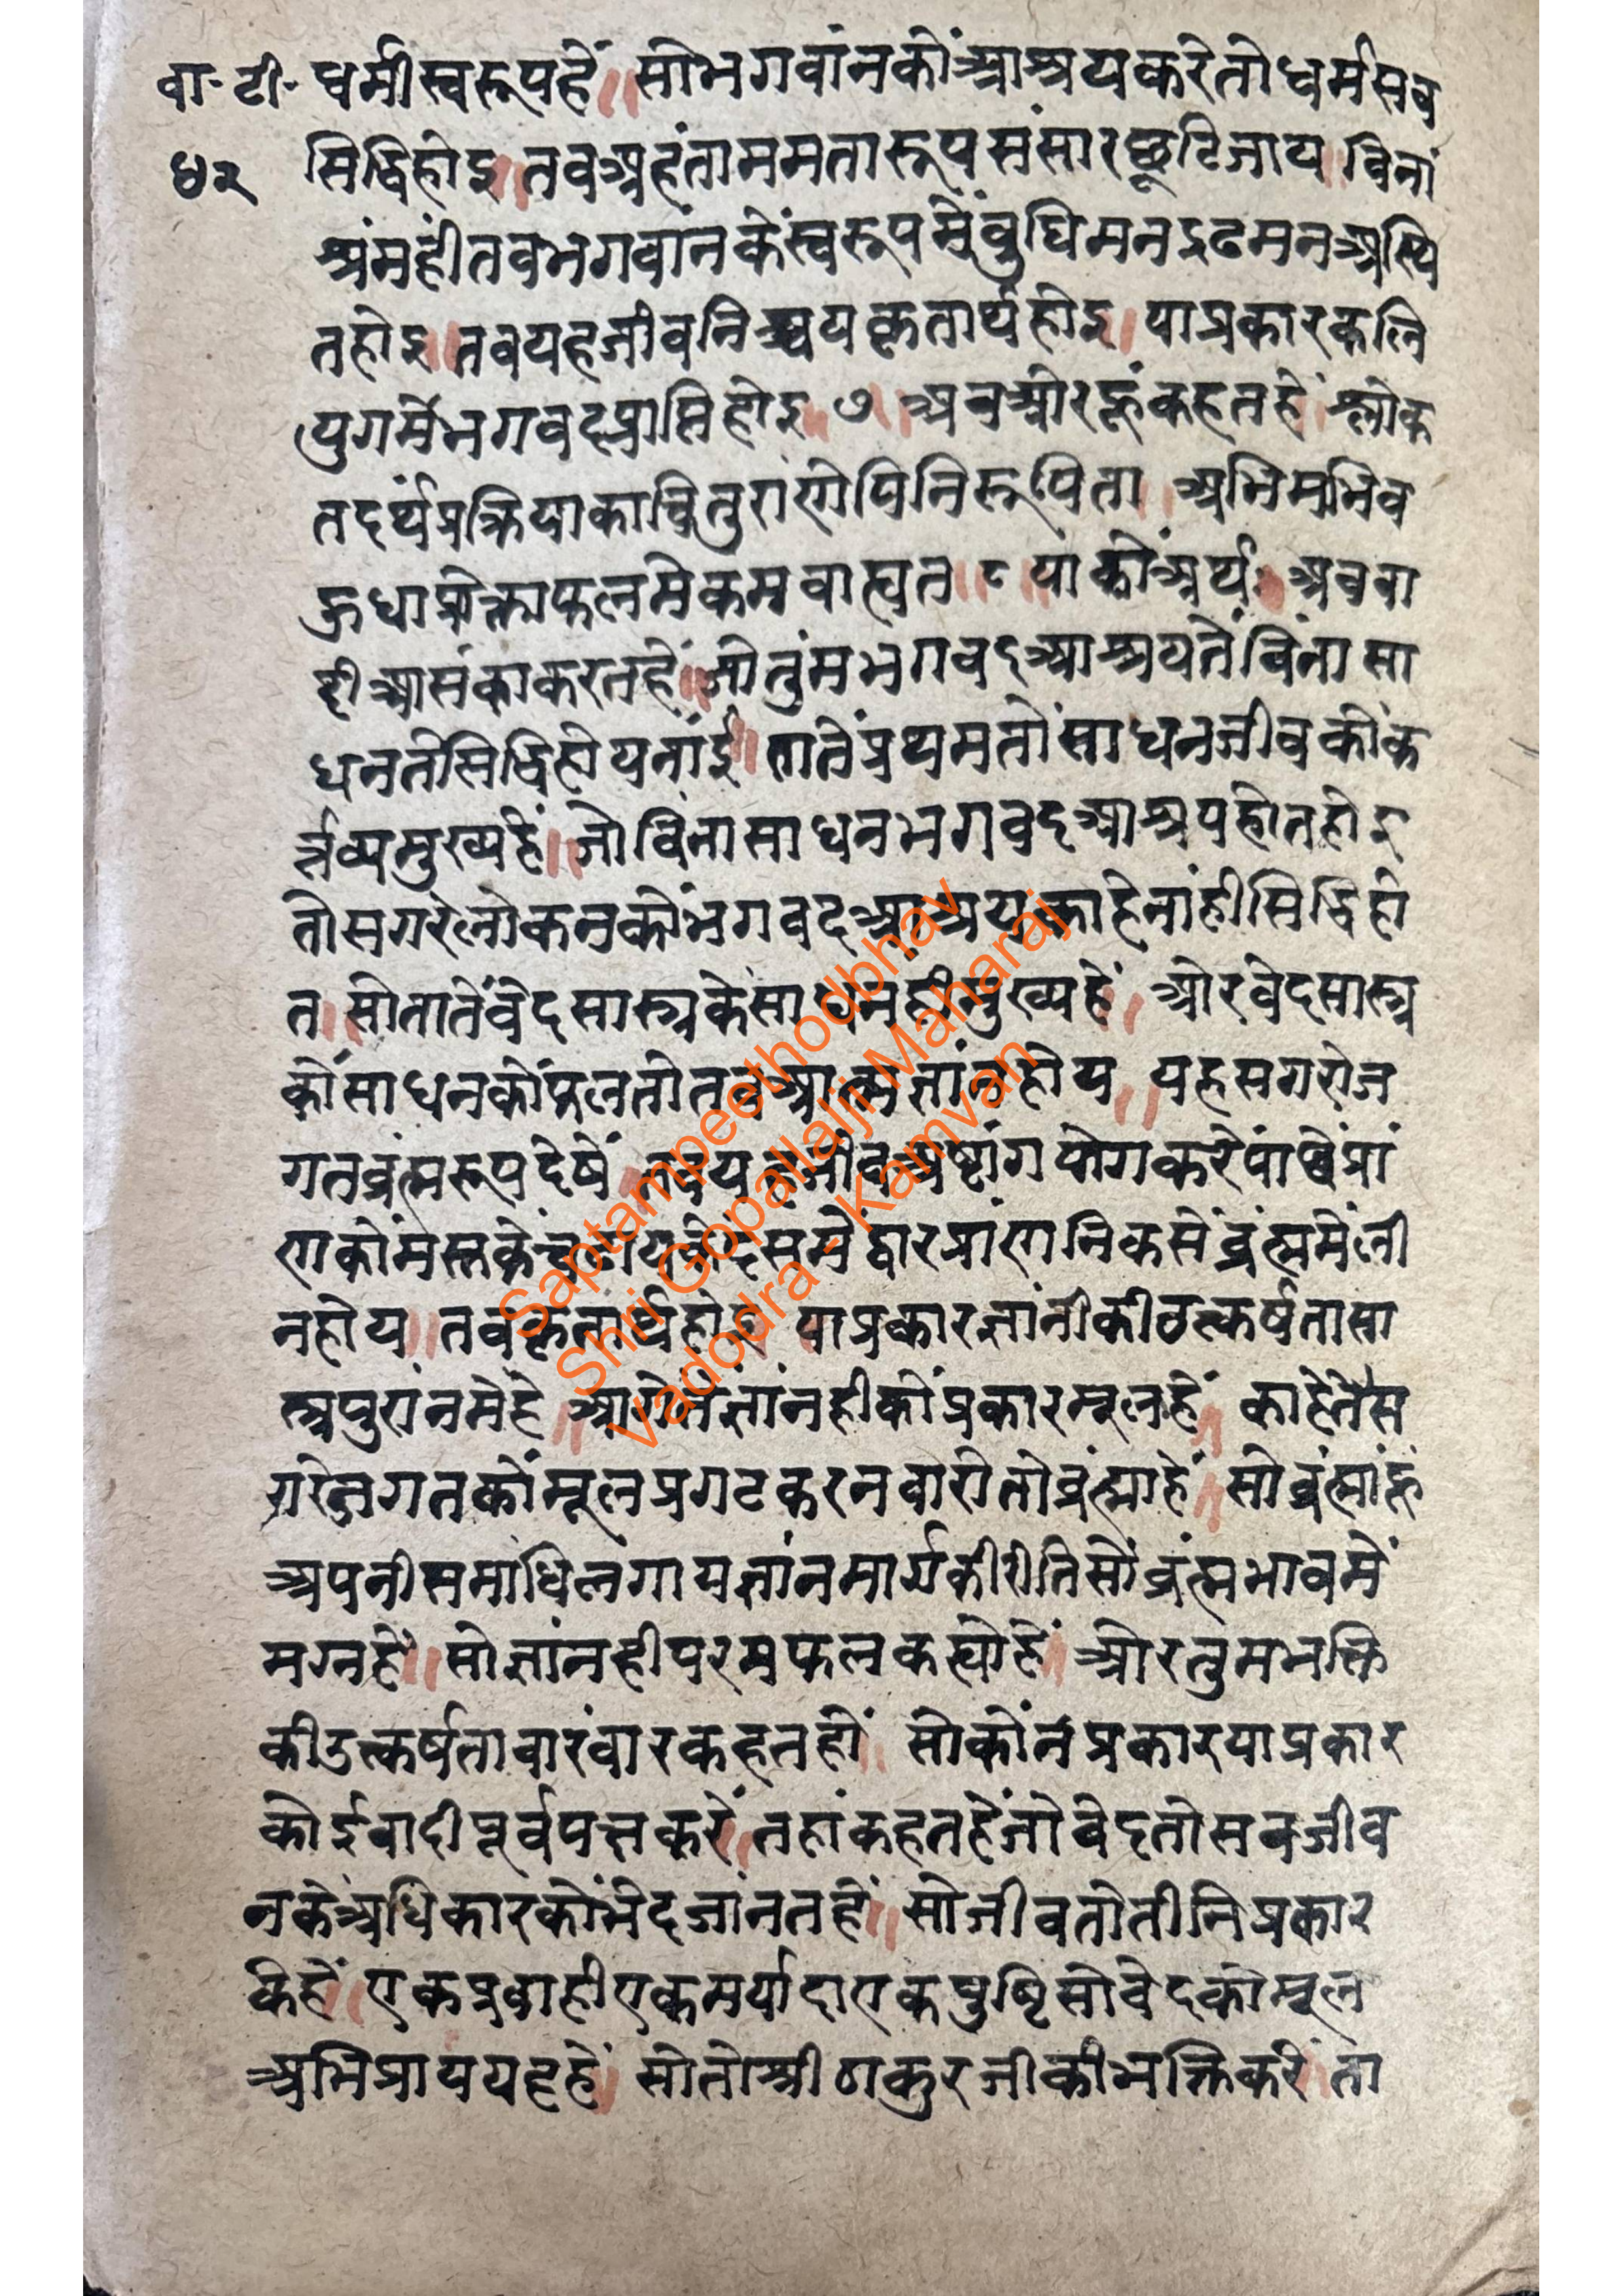 वा॰ टी॰ धर्मीस्वरूपहें ॥ सोभगवांनकोंआश्रयकरेतोधर्मसब
४२ सिद्धिहोइ ॥ तबअहंताममतारूपसंसारछूटिजाय ॥ विनां
श्रंमहींतबभगवांनकेंस्वरूपमेंबुधिमनदृढमनअस्थि
तहोइ ॥ तबयहजीवनिश्चयकृतार्थहोइ ॥ याप्रकारकलि
युगमेंभगवद्प्राप्तिहोइ ॥ ७ ॥ अबओरहूंकहतहें ॥ श्लोक
तदर्थंप्रक्रियाकाचित्पुराणेपिनिरूपिता ॥
॥ ८ ॥ याकोंअर्थः ॥ अबवा
दीआसंकाकरतहें ॥ जोतुंमभगवदआश्रयतेंविंनासा
धनतेंसिद्धिहोयनांईं ॥ तातेंप्रथमतोंसाधनजीवकोंक
र्त्तव्यमुख्यहें ॥ जोविंनासाधनभगवदआश्रयहोतहोइ
तोसगरेलोकनकोंभगवदआश्रयकाहेनांहीसिद्धिहो
त ॥ सोतातेंवेदसास्त्रकेसाधनहीमुख्यहें ॥ ओरवेदसास्त्र
कोंसाधनकोंफलतोतबआत्मज्ञांनहोय ॥ यहसगरोज
गतब्रंह्मरूपदेषें ॥ तबयहजीवअष्टांगयोगकरेंपांछेंप्रां
णकोंमस्तकेंचढायकेंदसमेंद्वारप्रांणनिकसेंब्रंह्ममेंली
नहोय ॥ तबकृतार्थहोइ ॥ याप्रकारज्ञांनीकीउत्कर्षतासा
स्त्रपुरांनमेंहे ॥ आगेतेंज्ञांनहीकोंप्रकारमूलहें ॥ काहेतेंस
गरेजगतकोंमूलप्रगटकरनवारोतोब्रंह्माहें ॥ सोब्रंह्मांहूं
अपनीसमाधिलगायज्ञांनमार्गकीरीतिसोंब्रंह्मभावमें
मग्नहें ॥ सोज्ञांनहीपरमफलकह्योहें ॥ ओरतुमभक्ति
कीउत्कर्षतावारंवारकहतहों ॥ सोकोंनप्रकारयाप्रकार
कोईवादीपूर्वपक्षकरें ॥ तहांकहतहेंजोवेदतोसबजीव
नकेअधिकारकोंभेदजांनतहें ॥ सोजीवतोतीनिप्रकार
केहें ॥ एकप्रवाहीएकमर्यादाएकपुष्टिसोवेदकोमूल
अभिप्राययहहें ॥ सोतोश्रीठाकुरजीकीभक्तिकरें ॥ ता
Saptampeethodbhav
Shri Gopallalji Maharaj
Vadodra - Kamvan